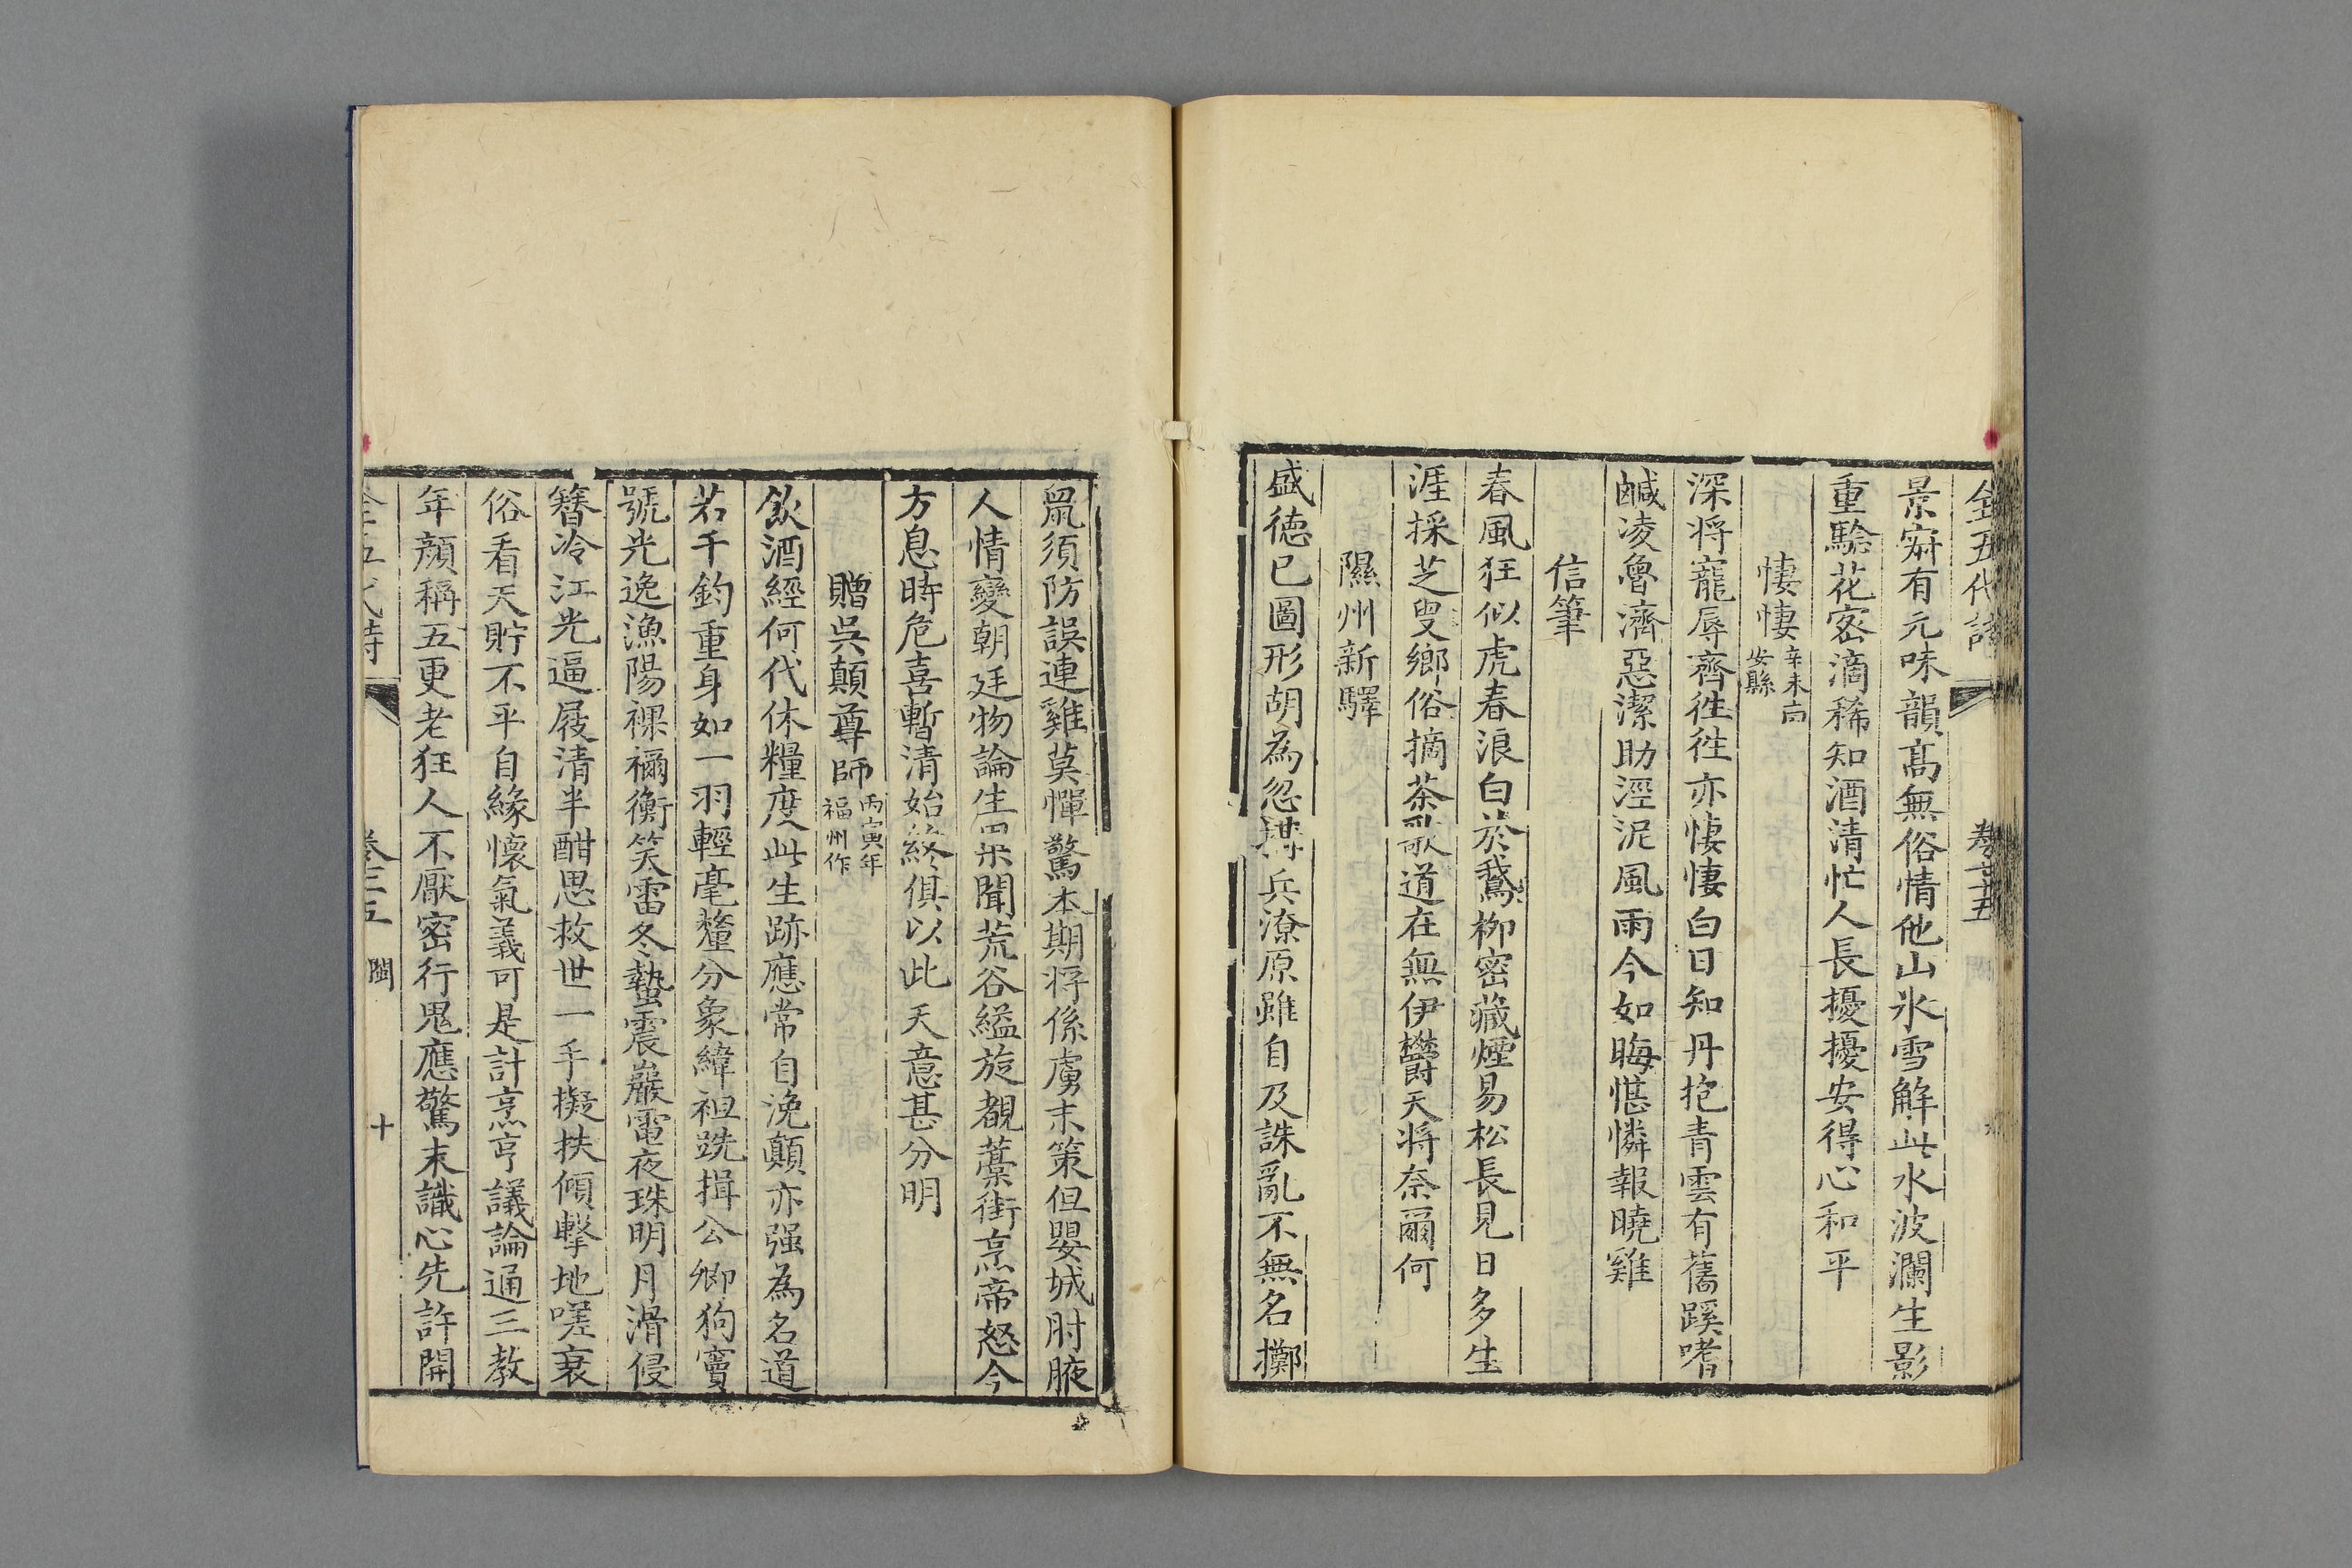 全五代詩 卷七十五
景寂有元味韻髙無俗情他山氷雪解此水波瀾生影
重驗花密滴稀知酒清忙人長擾擾安得心和平
悽悽辛未南安縣
深將寵辱齊徃徃亦悽悽白日知丹抱青雲有舊蹊嗜
鹹凌魯濟惡潔助涇泥風雨今如晦堪憐報曉雞
信筆
春風狂似虎春浪白於鵝柳密藏煙易松長見日多生
涯採芝叟鄉俗摘茶歌道在無伊鬱天将奈爾何
隰州新驛
盛德已圖形胡為忽構兵潦原雖自及誅亂不無名擲
鼠須防誤連雞莫憚驚本期將係虜末策但嬰城肘腋
人情變朝廷物論生果聞荒谷縊旋覩藁街烹帝怒今
方息時危喜暫清始終俱以此天意甚分明
贈吳顛尊師丙寅年福州作
飲酒經何代休糧度此生跡應常自浼顛亦强為名道
若千鈞重身如一羽輕毫釐分象緯袒跣揖公卿狗竇
號光逸漁陽裸禰衡笑雷冬蟄震巖電夜珠明月滑侵
簪冷江光逼屐清半酣思救世一手擬扶傾擊地嗟衰
俗看天貯不平自緣懷氣義可是計烹亨議論通三教
年顏稱五更老狂人不厭密行鬼應驚末識心先許開
全五代詩 卷 五 閩 十